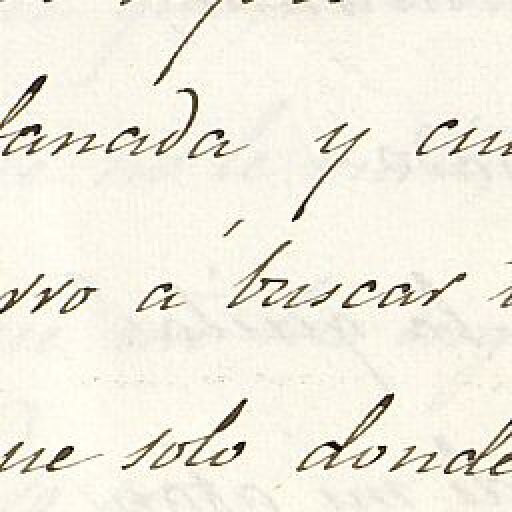 lanada y cu
rro á buscar
ue solo donde